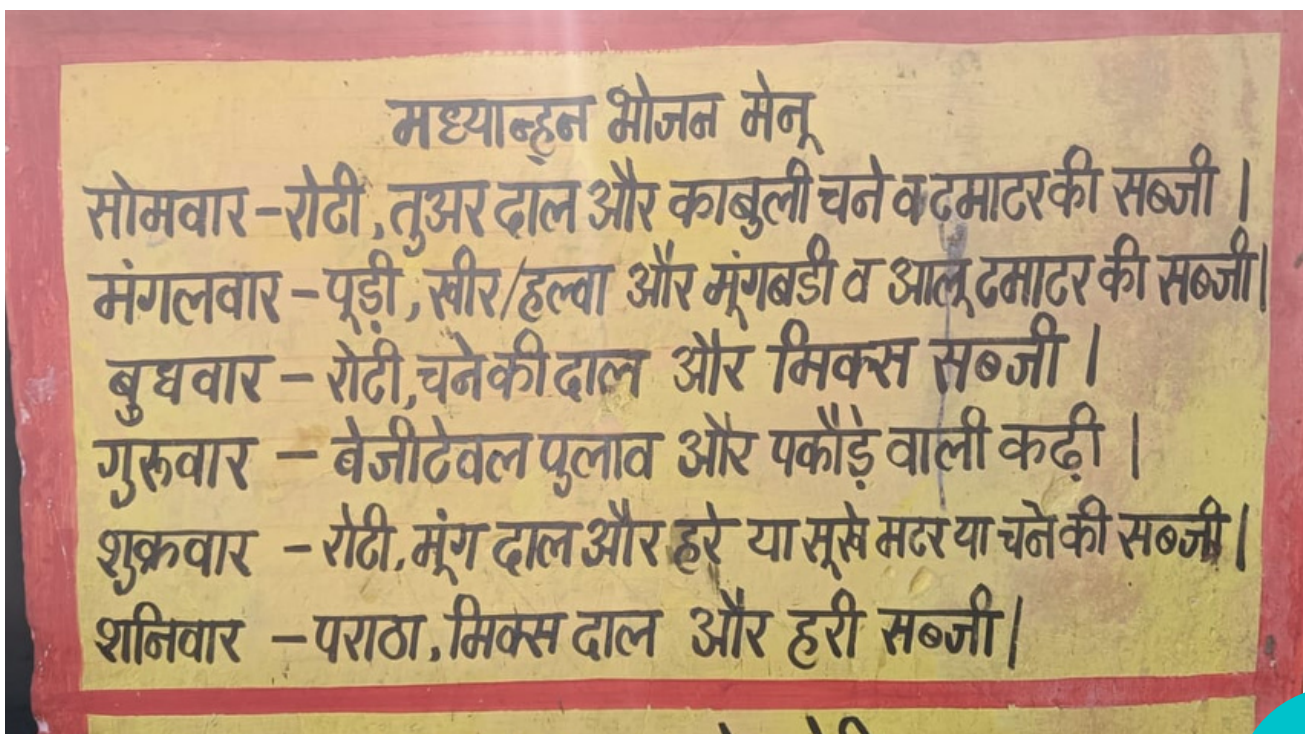 मध्यान्हन भोजन मेनू
सोमवार - रोटी, तुअर दाल और काबुली चने व टमाटर की सब्जी।
मंगलवार - पूड़ी, खीर/हल्वा और मूंगबडी व आलू टमाटर की सब्जी।
बुधवार - रोटी, चने की दाल और मिक्स सब्जी।
गुरूवार - बेजीटेवल पुलाव और पकौड़े वाली कढ़ी।
शुक्रवार - रोटी, मूंग दाल और हरे या सूखे मटर या चने की सब्जी।
शनिवार - पराठा, मिक्स दाल और हरी सब्जी।